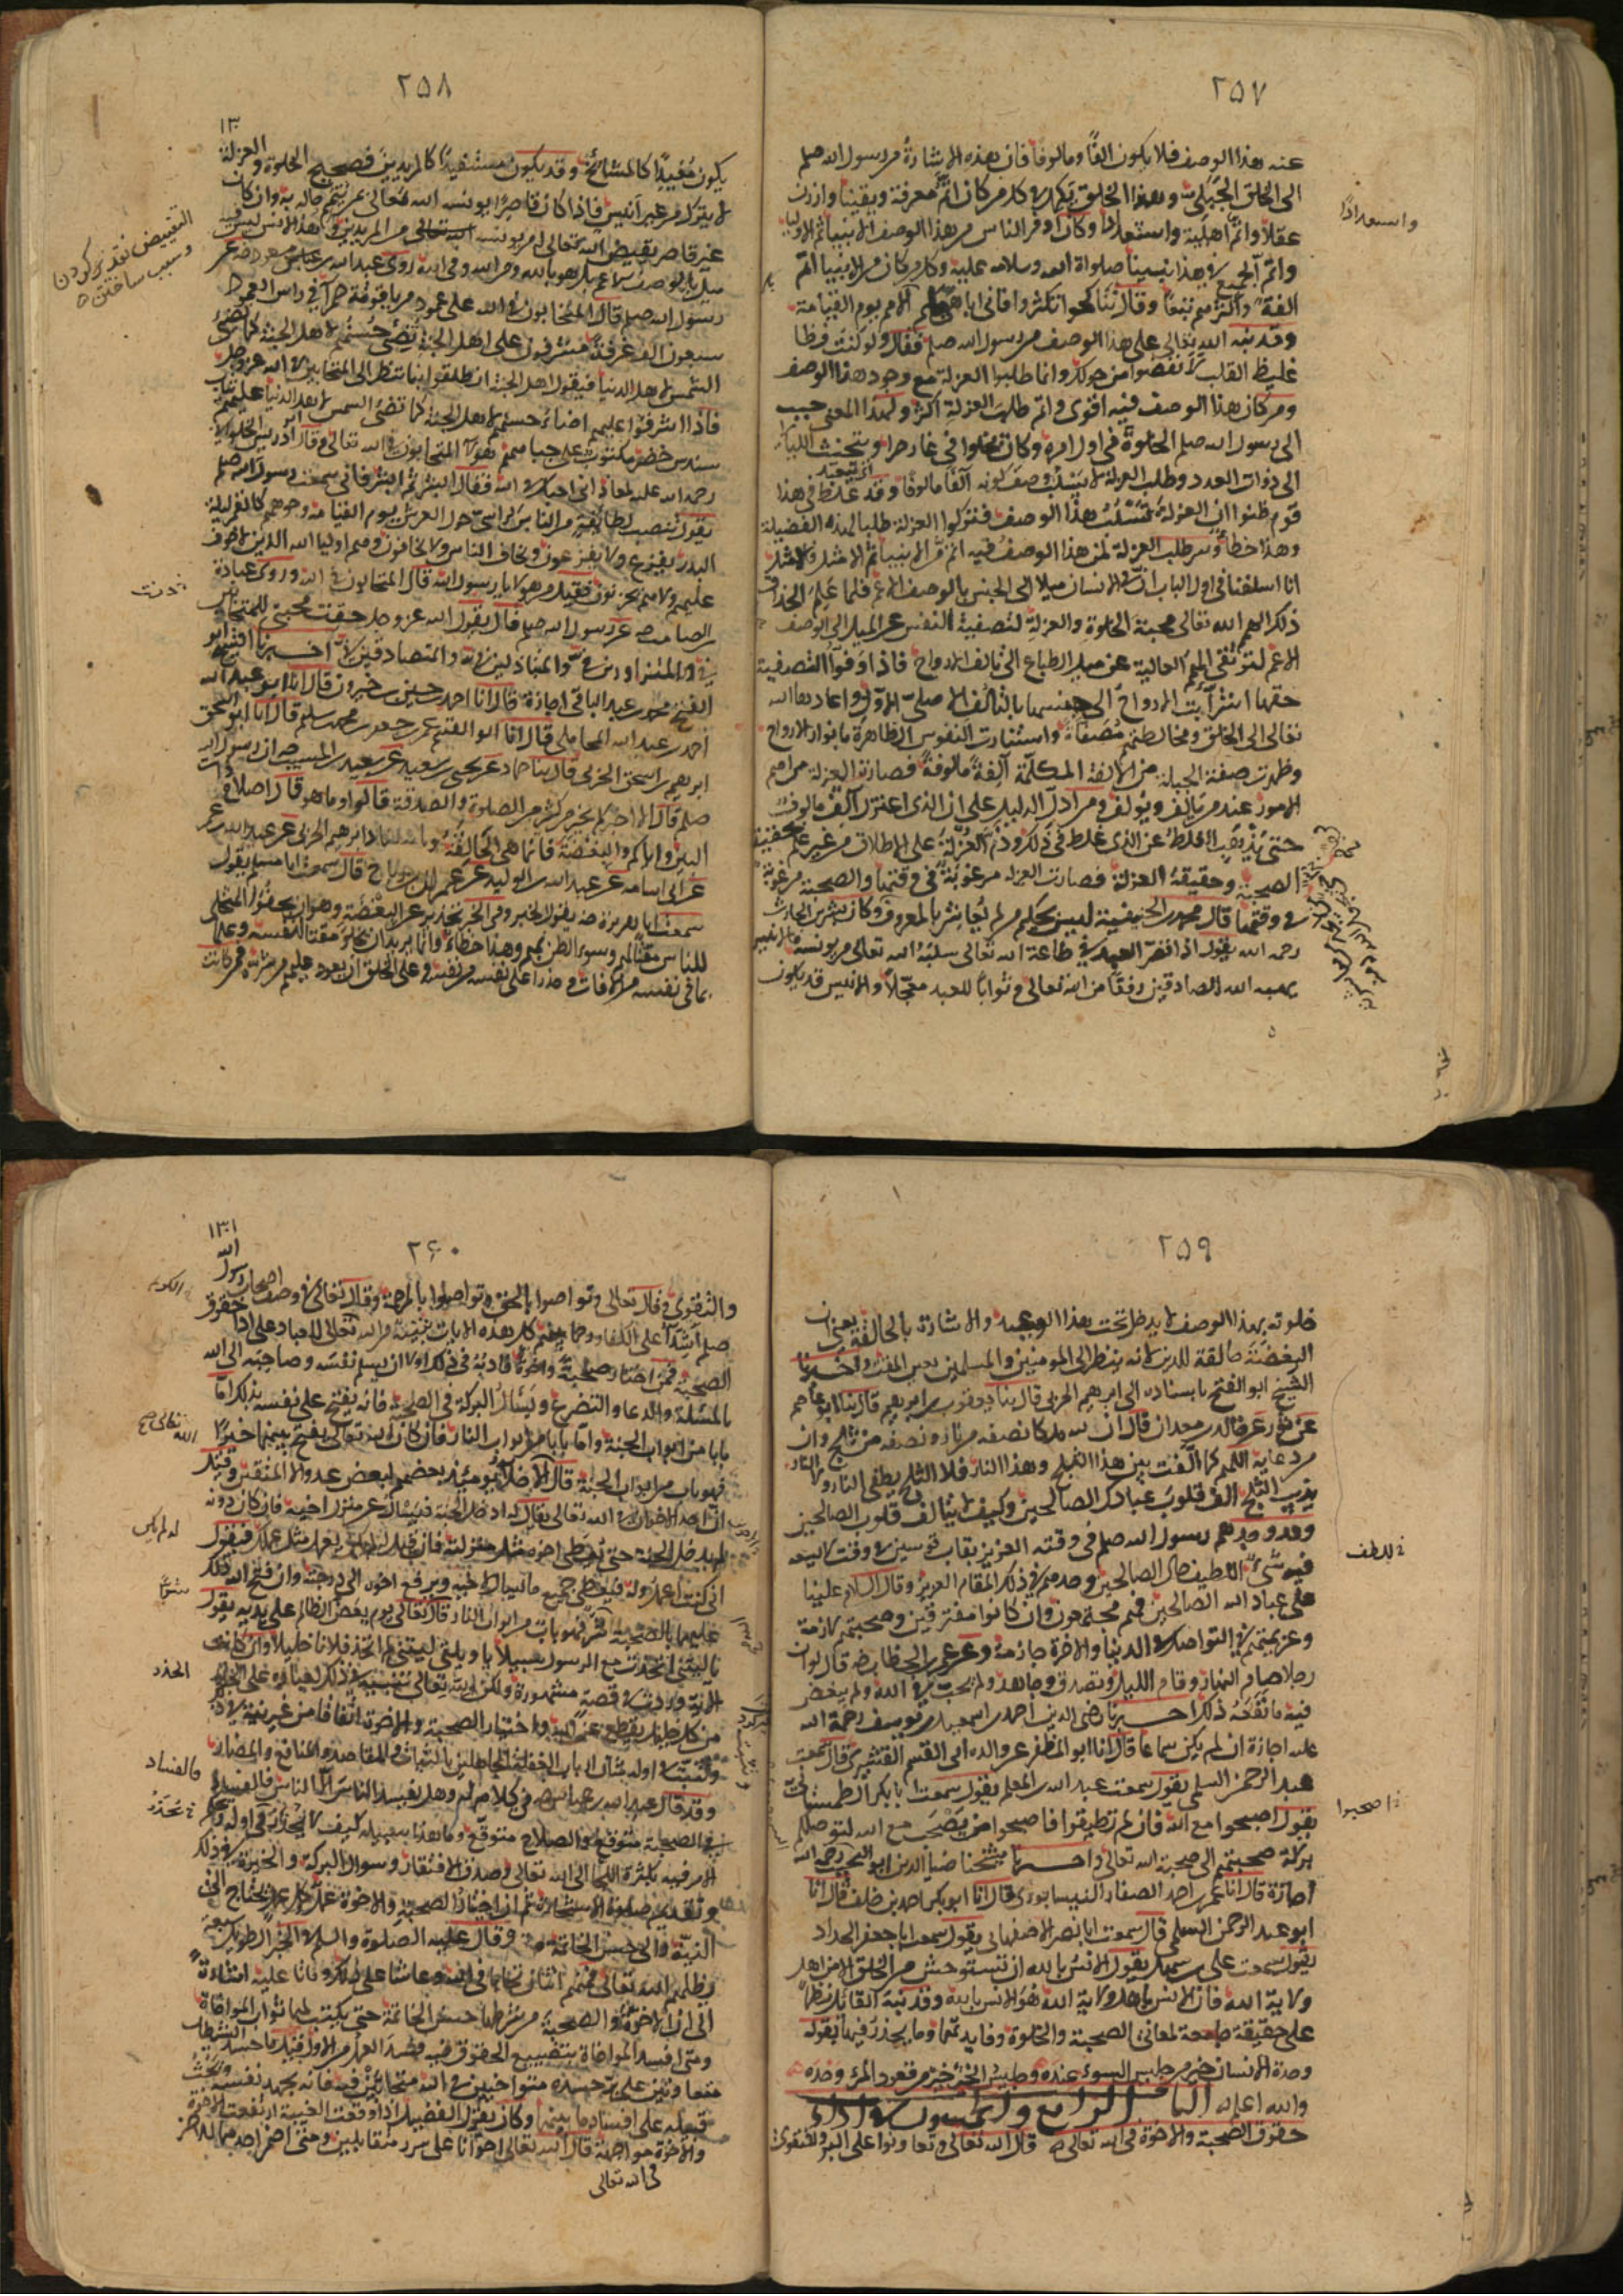 ٢٥٧
عنه هذا الوصف فلا يكون الفًا ومالوفا فان هذه الاشارة من رسول الله صلم
الى الخلق الجبلي وهذا الخلق يكمل في كل من كان اتم معرفة ويقينا وارزن
عقلا واتم اهلية واستعدادا وكان اوفر الناس من هذا الوصف الانبياء ثم الاوليا
واتم الجميع في هذا نبينا صلواة الله وسلامه عليه وكل من كان من الانبيا اتم
الفة واكثرهم تبعا وقال تناكحوا تكثروا فاني اباهي بكم الامم يوم القيامة
وقد نبه الله تعالى على هذا الوصف من رسول الله صلم فقال ولو كنت فظا
غليظ القلب لانفضوا من حولك وانما طلبوا العزلة مع وجود هذا الوصف
ومن كان هذا الوصف فيه اقوى واتم طلب العزلة اكثر ولهذا المعنى حبب
الى رسول الله صلم الخلوة في اول امره وكان يخلوا في غار حرا ويتحنث الليالي
الى ذوات العدد وطلب العزلة لا يسلب وصف كونه آلفا مالوفا وقد غلط في هذا
قوم ظنوا ان العزلة تسلب هذا الوصف فتركوا العزلة طلبا لهذه الفضيلة
وهذا خطأ وسر طلب العزلة لمن هذا الوصف فيه اتم من الانبيا ثم الامثل فالامثل
انا اسلفنا في اول الباب ان في الانسان ميلا الى الجنس بالوصف الاعم فلما علم الحذاق
ذلك الهمهم الله تعالى محبة الخلوة والعزلة لتصفية النفس عن الميل الى الوصف
الاعم لترتقي الهمم العالية عن ميل الطباع الى تالف الارواح فاذا وفوا التصفية
حقها اشرأبت الارواح الى جنسها بالتالف الاصلي الاول واعادها الله
تعالى الى الخلق ومخالطتهم مصفاة واستنارت النفوس الطاهرة بانوار الارواح
وظهرت صفة الجبلة من الالفة المكملة آلفة مالوفة فصارت العزلة من اهم
الامور عند من يالف ويولف ومن ادل الدليل على ان الذي اعتزل آلف مالوف
حتى يذهب الغلط عن الذي غلط في ذلك وذم العزلة على الاطلاق من غير علم بحقيقة
الصحبة وحقيقة العزلة فصارت العزلة مرغوبة في وقتها والصحبة مرغوبة
في وقتها قال محمد بن الحنفية ليس بحكيم من لم يعاشر بالمعروف وكان بشر بن الحارث
رحمه الله يقول اذا قصر العبد في طاعة الله تعالى سلبه الله تعالى من يونسه فالانيس
يهيبه الله للصادقين رفقا من الله تعالى وثوابا للعبد معجلا والانيس قد يكون
واستعدادًا
٢٥٨
١٣٠
يكون مفيدا كالمشائخ وقد يكون مستفيدا كالمريدين فصحيح الخلوة والعزلة
لا يترك من غير انيس فاذا كان قاصرا يونسه الله تعالى بمن يتمم حاله به وان كان
غير قاصر يقيض الله تعالى له من يونسه من المريدين وهذا الانس ليس فيه
ميل بالوصف الاعم بل هو بالله ومن الله وفي الله روى عبد الله بن مسعود رضه عن
رسول الله صلم قال المتحابون في الله على عمود من ياقوتة حمرآ في راس العمود
سبعون الف غرفة مشرفون على اهل الجنة يضيء حسنهم لاهل الجنة كما تضئ
الشمس لاهل الدنيا فيقول اهل الجنة انطلقوا بنا ننظر الى المتحابين في الله عز وجل
فاذا اشرفوا عليهم اضاء حسنهم لاهل الجنة كما تضئ الشمس لاهل الدنيا عليهم ثياب
سندس خضر مكتوب على جباههم هولا المتحابون في الله تعالى وقال ابو ادريس الخولاني
رحمه الله عليه لمعاذ اني احبك في الله فقال ابشر ثم ابشر فاني سمعت رسول الله صلم
يقول تنصب لطائفة من الناس كراسي حول العرش يوم القيامة وجوههم كالقمر ليلة
البدر يفزع الناس ولا يفزعون ويخاف الناس ولا يخافون وهم اوليا الله الذين لا خوف
عليهم ولا هم يحزنون فقيل من هولا يا رسول الله قال المتحابون في الله وروى عبادة
بن الصامت عن رسول الله صلم قال يقول الله عز وجل حقت محبتي للمتحابين
في والمتزاورين في والمتباذلين في والمتصادقين في اخبرنا الشيخ ابو
الفتح محمد بن عبد الباقي اجازة قال انا احمد بن حسين بن خيرون قال انا ابو عبد الله
احمد بن عبد الله المحاملي قال انا ابو القسم عمر بن جعفر بن محمد بن سلم قال انا ابو اسحق
ابرهيم بن اسحق الحربي قال ثنا حماد عن يحيى بن سعيد عن سعيد بن المسيب ان رسول الله
صلم قال الا اخبركم بخير من كثير من الصلوة والصدقة قالوا وما هو قال اصلاح ذات
البين واياكم والبغضة فانها هي الحالقة وباسناد ابرهيم الحربي عن عبيد الله بن عمر
عن ابي اسامة عن عبد الله بن الوليد عن عمران بن رباح قال سمعت ابا مسلم يقول
سمعت ابا هريرة رضه يقول الخبر وفي الخبر تحذير عن البغضة وهو ان يجفو المختلي
للناس مقتا لهم وسوء الظن بهم وهذا خطاء وانما يريد ان يخلو مقتا لنفسه وعلما
بما في نفسه من الافات وحذرا على نفسه من نفسه وعلى الخلق ان يعود عليهم من شره فمن كانت
التقييض تقدير كردن
وسبب ساختن
٢٥٩
خلوته بهذا الوصف لا يدخل تحت هذا الوعيد والاشارة بالحالقة يعني ان
البغضة حالقة للدين لانه ينظر الى المومنين والمسلمين بعين المقت واخبرنا
الشيخ ابو الفتح باسناده الى ابرهيم الحربي قال ثنا يعقوب بن ابرهيم قال ثنا ابو عاصم
عن ثور عن خالد بن معدان قال ان لله ملكا نصفه من نار ونصفه من ثلج وان
من دعايه اللهم كما الفت بين هذا الثلج وهذا النار فلا الثلج يطفى النار ولا النار
يذيب الثلج الف بين قلوب عبادك الصالحين وكيف لا يتالف قلوب الصالحين
وقد وجدهم رسول الله صلم في وقته العزيز بقاب قوسين في وقت لا يسعه
فيه شيء للطيف حال الصالحين وجدهم في ذلك المقام العزيز وقال السلام علينا
على عباد الله الصالحين فهم مجتمعون وان كانوا مفترقين وصحبتهم لازمة
وعزيمتهم في التواصل في الدنيا والاخرة جازمة وعن عمر بن الخطاب رضه قال لو ان
رجلا صام النهار وقام الليل وتصدق وجاهد ولم يحب في الله ولم يبغض
فيه ما نفعه ذلك اخبرنا رضي الدين احمد بن اسمعيل بن يوسف رحمة الله
عليه اجازة ان لم يكن سماعا قال انا ابو المظفر عن والده ابي القسم القشيري قال سمعت
عبد الرحمن السلمي يقول سمعت عبد الله بن المعلم يقول سمعت ابا بكر الطمستاني
يقول اصحبوا مع الله فان لم تطيقوا فاصحبوا من يصحب مع الله لتوصلكم
بركة صحبتهم الى صحبة الله تعالى واخبرنا شيخنا ضيا الدين ابو النجيب رحمه الله
اجازة قال انا عمر بن احمد الصفار النيسابوري قال انا ابو بكر احمد بن خلف قال انا
ابو عبد الرحمن السلمي قال سمعت ابا نصر الاصفهاني يقول سمعت ابا جعفر الحداد
يقول سمعت علي بن سهل يقول الانس بالله ان تستوحش من الخلق الا من اهل
ولاية الله فان الانس باهل ولاية الله هو الانس بالله وقد نبه القائل نظما
على حقيقة جامعة لمعاني الصحبة والخلوة وفايدتها وما يحذر فيها بقوله
وحدة الانسان خير من جليس السوء عنده وجليس الخير خير من قعود المرء وحده
والله اعلم الباب الرابع والخمسون في اداء
حقوق الصحبة والاخوة في الله تعالى قال الله تعالى وتعاونوا على البر والتقوى
للطف
اصحبوا
٢٦٠
١٣١
والتقوى وقال تعالى وتواصوا بالحق وتواصوا بالمرحمة وقال تعالى في وصف اصحاب رسول الله
صلم اشدآ على الكفار رحماء بينهم كل هذه الايات تنبيه من الله تعالى للعباد على ادا حقوق
الصحبة فمن اختار صحبة واخوة فادبه في ذلك اولا ان يسلم نفسه وصاحبه الى الله
بالمسئلة والدعا والتضرع ويسال البركة في الصحبة فانه يفتح على نفسه بذلك اما
بابا من ابواب الجنة واما بابا من ابواب النار فان كان الله تعالى يفتح بينهما خيرا
فهو باب من ابواب الجنة قال الاخلاء يومئذ بعضهم لبعض عدو الا المتقين وقيل
ان احد الاخوين في الله تعالى يقال له ادخل الجنة فيسال عن منزل اخيه فان كان دونه
لم يدخل الجنة حتى يعطى اخوه مثل منزلته فان قيل له لم يكن يعمل مثل عملك فيقول
اني كنت اعمل لي وله فيعطى جميع ما يسال لاخيه ويرفع اخوه الى درجته وان فتح الله
عليهما بالصحبة شرا فهو باب من ابواب النار قال تعالى يوم يعض الظالم على يديه يقول
يا ليتني اتخذت مع الرسول سبيلا يا ويلتي ليتني لم اتخذ فلانا خليلا وان كانت
الاية وردت في قصة مشهورة ولكن الله تعالى نبه بذلك عباده على الحذر
من كل خليل يقطع عن الله واختيار الصحبة والاخوة اتفاقا من غير نية في ذلك
وتثبت في اول شان ارباب الغفلة الجاهلين بالنيات والمقاصد والمنافع والمضار
وقد قال عبد الله بن عباس رضه في كلام له وهل يفسد الناس الا الناس فالفساد
في الصحبة متوقع والصلاح متوقع وما هذا سبيله كيف لا يحذر في اوله ويحكم
الامر فيه بكثرة اللجا الى الله تعالى وصدق الافتقار وسوال البركة والخيرة في ذلك
وتقديم صلوة الاستخارة ثم ان اختيار الصحبة والاخوة عمل وكل عمل يحتاج الى
النية والى حسن الخاتمة وقال عليه الصلوة والسلم في الخبر الطويل سبعة
يظلهم الله تعالى فمنهم اثنان تحابا في الله وعاشا على ذلك وماتا عليه اشارة
الى ان الاخوة والصحبة من شرطهما حسن الخاتمة حتى يكتب لهما ثواب المواخاة
ومتى افسد المواخاة بتضييع الحقوق فيه فسد العمل من الاول قيل ما حسد الشيطان
متعاونين على بر حسده متواخيين في الله متحابين فيه فانه يجهد نفسه ويحث
قبيله على افساد ما بينهما وكان يقول الفضيل اذا وقعت الغيبة ارتفعت الاخوة
والاخوة مواجهة قال الله تعالى اخوانا على سرر متقابلين ومتى اضمر احدهما للاخر
في الله تعالى
الحذر
فالفساد